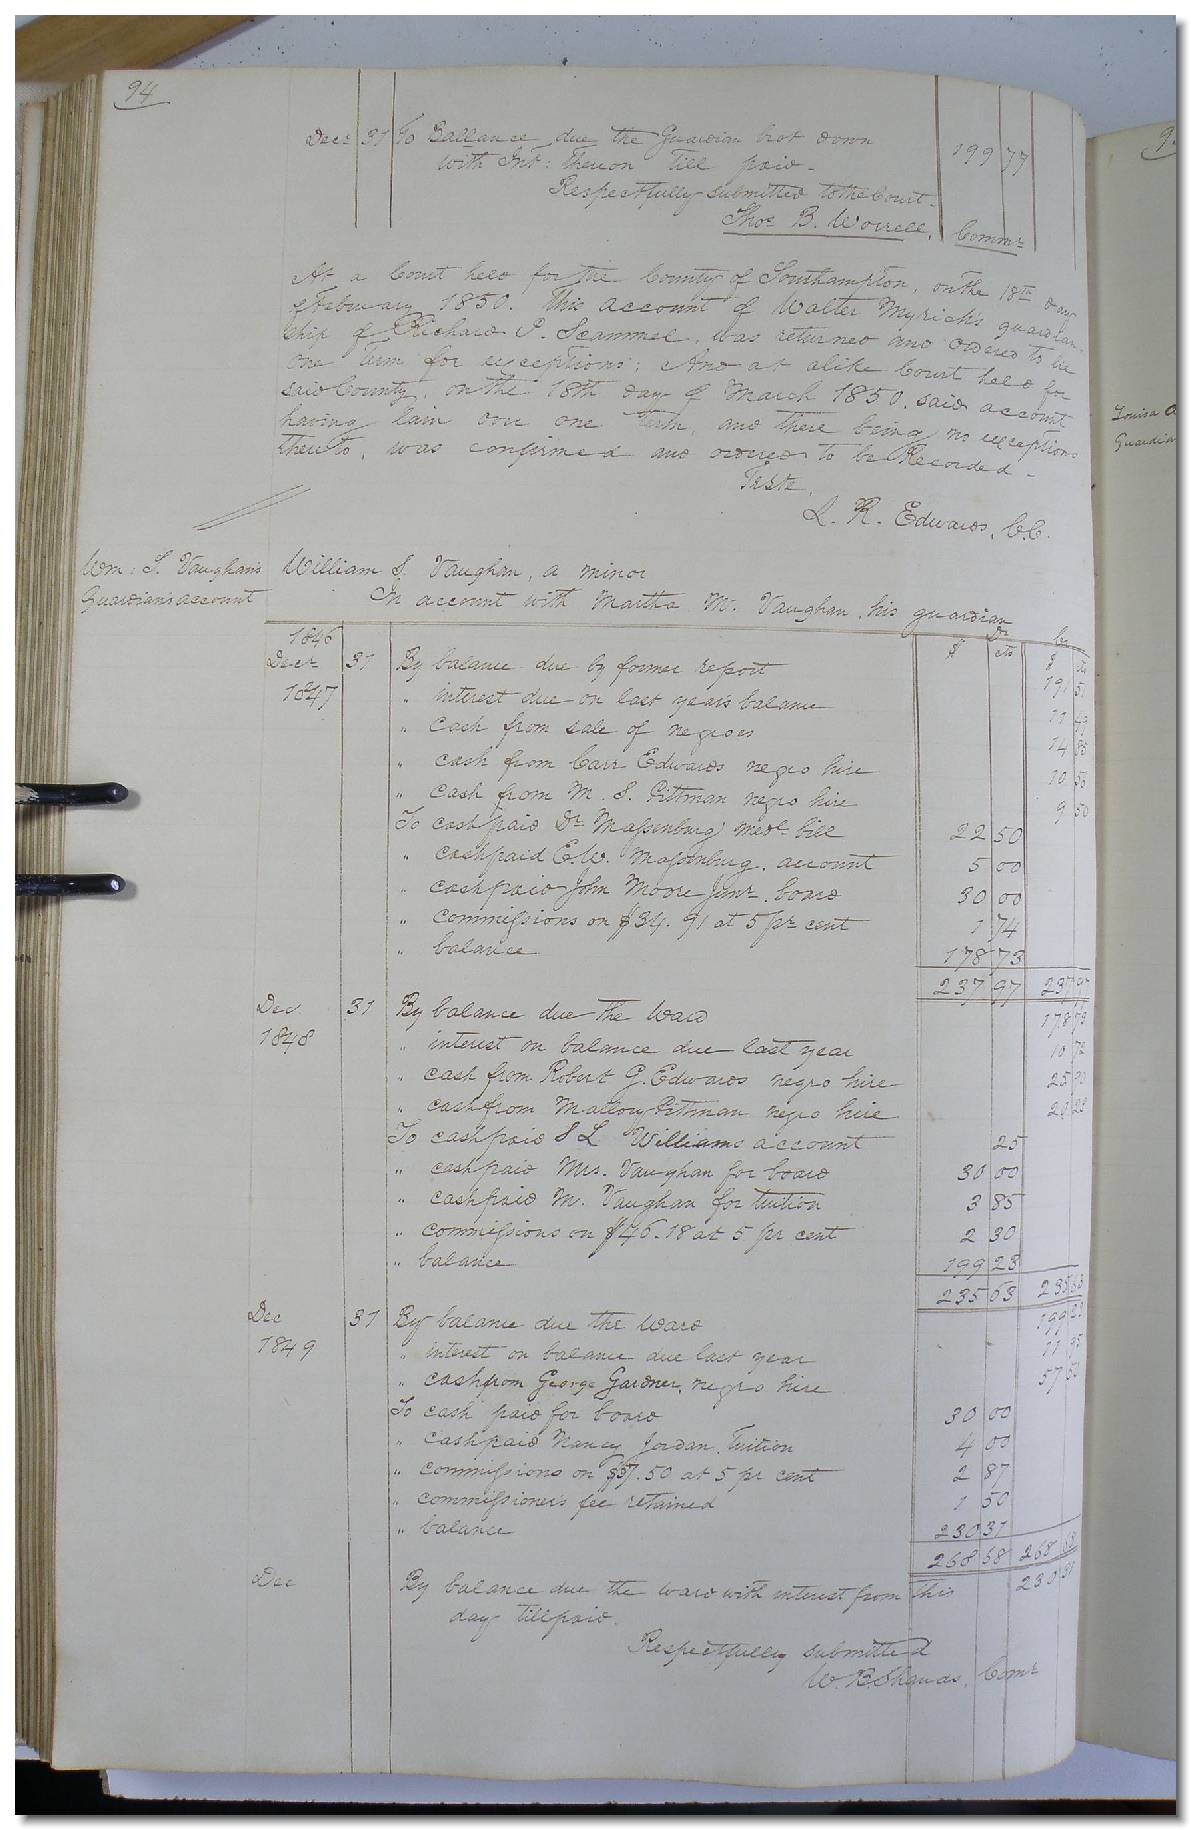 94
Decr 31 To Ballance due the Guardian brot down
with Int: thereon till paid - 199 77
Respectfully submitted to the Court -
Thos B. Worrell, Commr
At a Court held for the County of Southampton, on the 18th day
of February 1850. This account of Walter Myrick's guardian-
ship of Richard P. Scammel, was returned and ordered to lie
one Term for exceptions; And at alike Court held for
said County, on the 18th day of March 1850, said account
having lain over one Term, and there being no exceptions
thereto, was confirmed and ordered to be Recorded -
Teste,
L. R. Edwards, C.C.
Wm: S. Vaughan's
Guardian's account
William S. Vaughan, a minor
In account with Martha M. Vaughan, his guardian
Dr Cr
1846 $ cts $ cts
Decr 31 By balance due by former report 191 53
1847 " interest due on last year's balance 11 49
" cash from sale of negroes 14 85
" cash from Carr Edwards negro hire 10 53
" cash from M. S. Pittman negro hire 9 50
To cash paid Dr Massenburg medl bill 22 50
" cash paid E. W. Massenburg account 5 00
" cash paid John Moore Junr. board 30 00
" commissions on $34.91 at 5 pr cent 1 74
" balance 178 73
237 97 237 97
Dec 31 By balance due the Ward 178 73
1848 " interest on balance due last year 10 72
" cash from Robert G. Edwards negro hire 25 90
" cash from Mallory Pittman negro hire 20 28
To cash paid S L Williams account 25
" cash paid Mrs. Vaughan for board 30 00
" cash paid M. Vaughan for Tuition 3 85
" commissions on $46.18 at 5 pr cent 2 30
" balance 199 23
235 63 235 63
Dec 31 By balance due the Ward 199 23
1849 " interest on balance due last year 11 95
" cash from George Gardner, negro hire 57 50
To cash paid for board 30 00
" cash paid Nancy Jordan, Tuition 4 00
" commissions on $57.50 at 5 pr cent 2 87
" commissioner's fee retained 1 50
" balance 230 31
268 68 268 68
Dec By balance due the ward with interest from this 230 31
day till paid.
Respectfully submitted
W. B. Shands, Comr
Louisa
Guardian